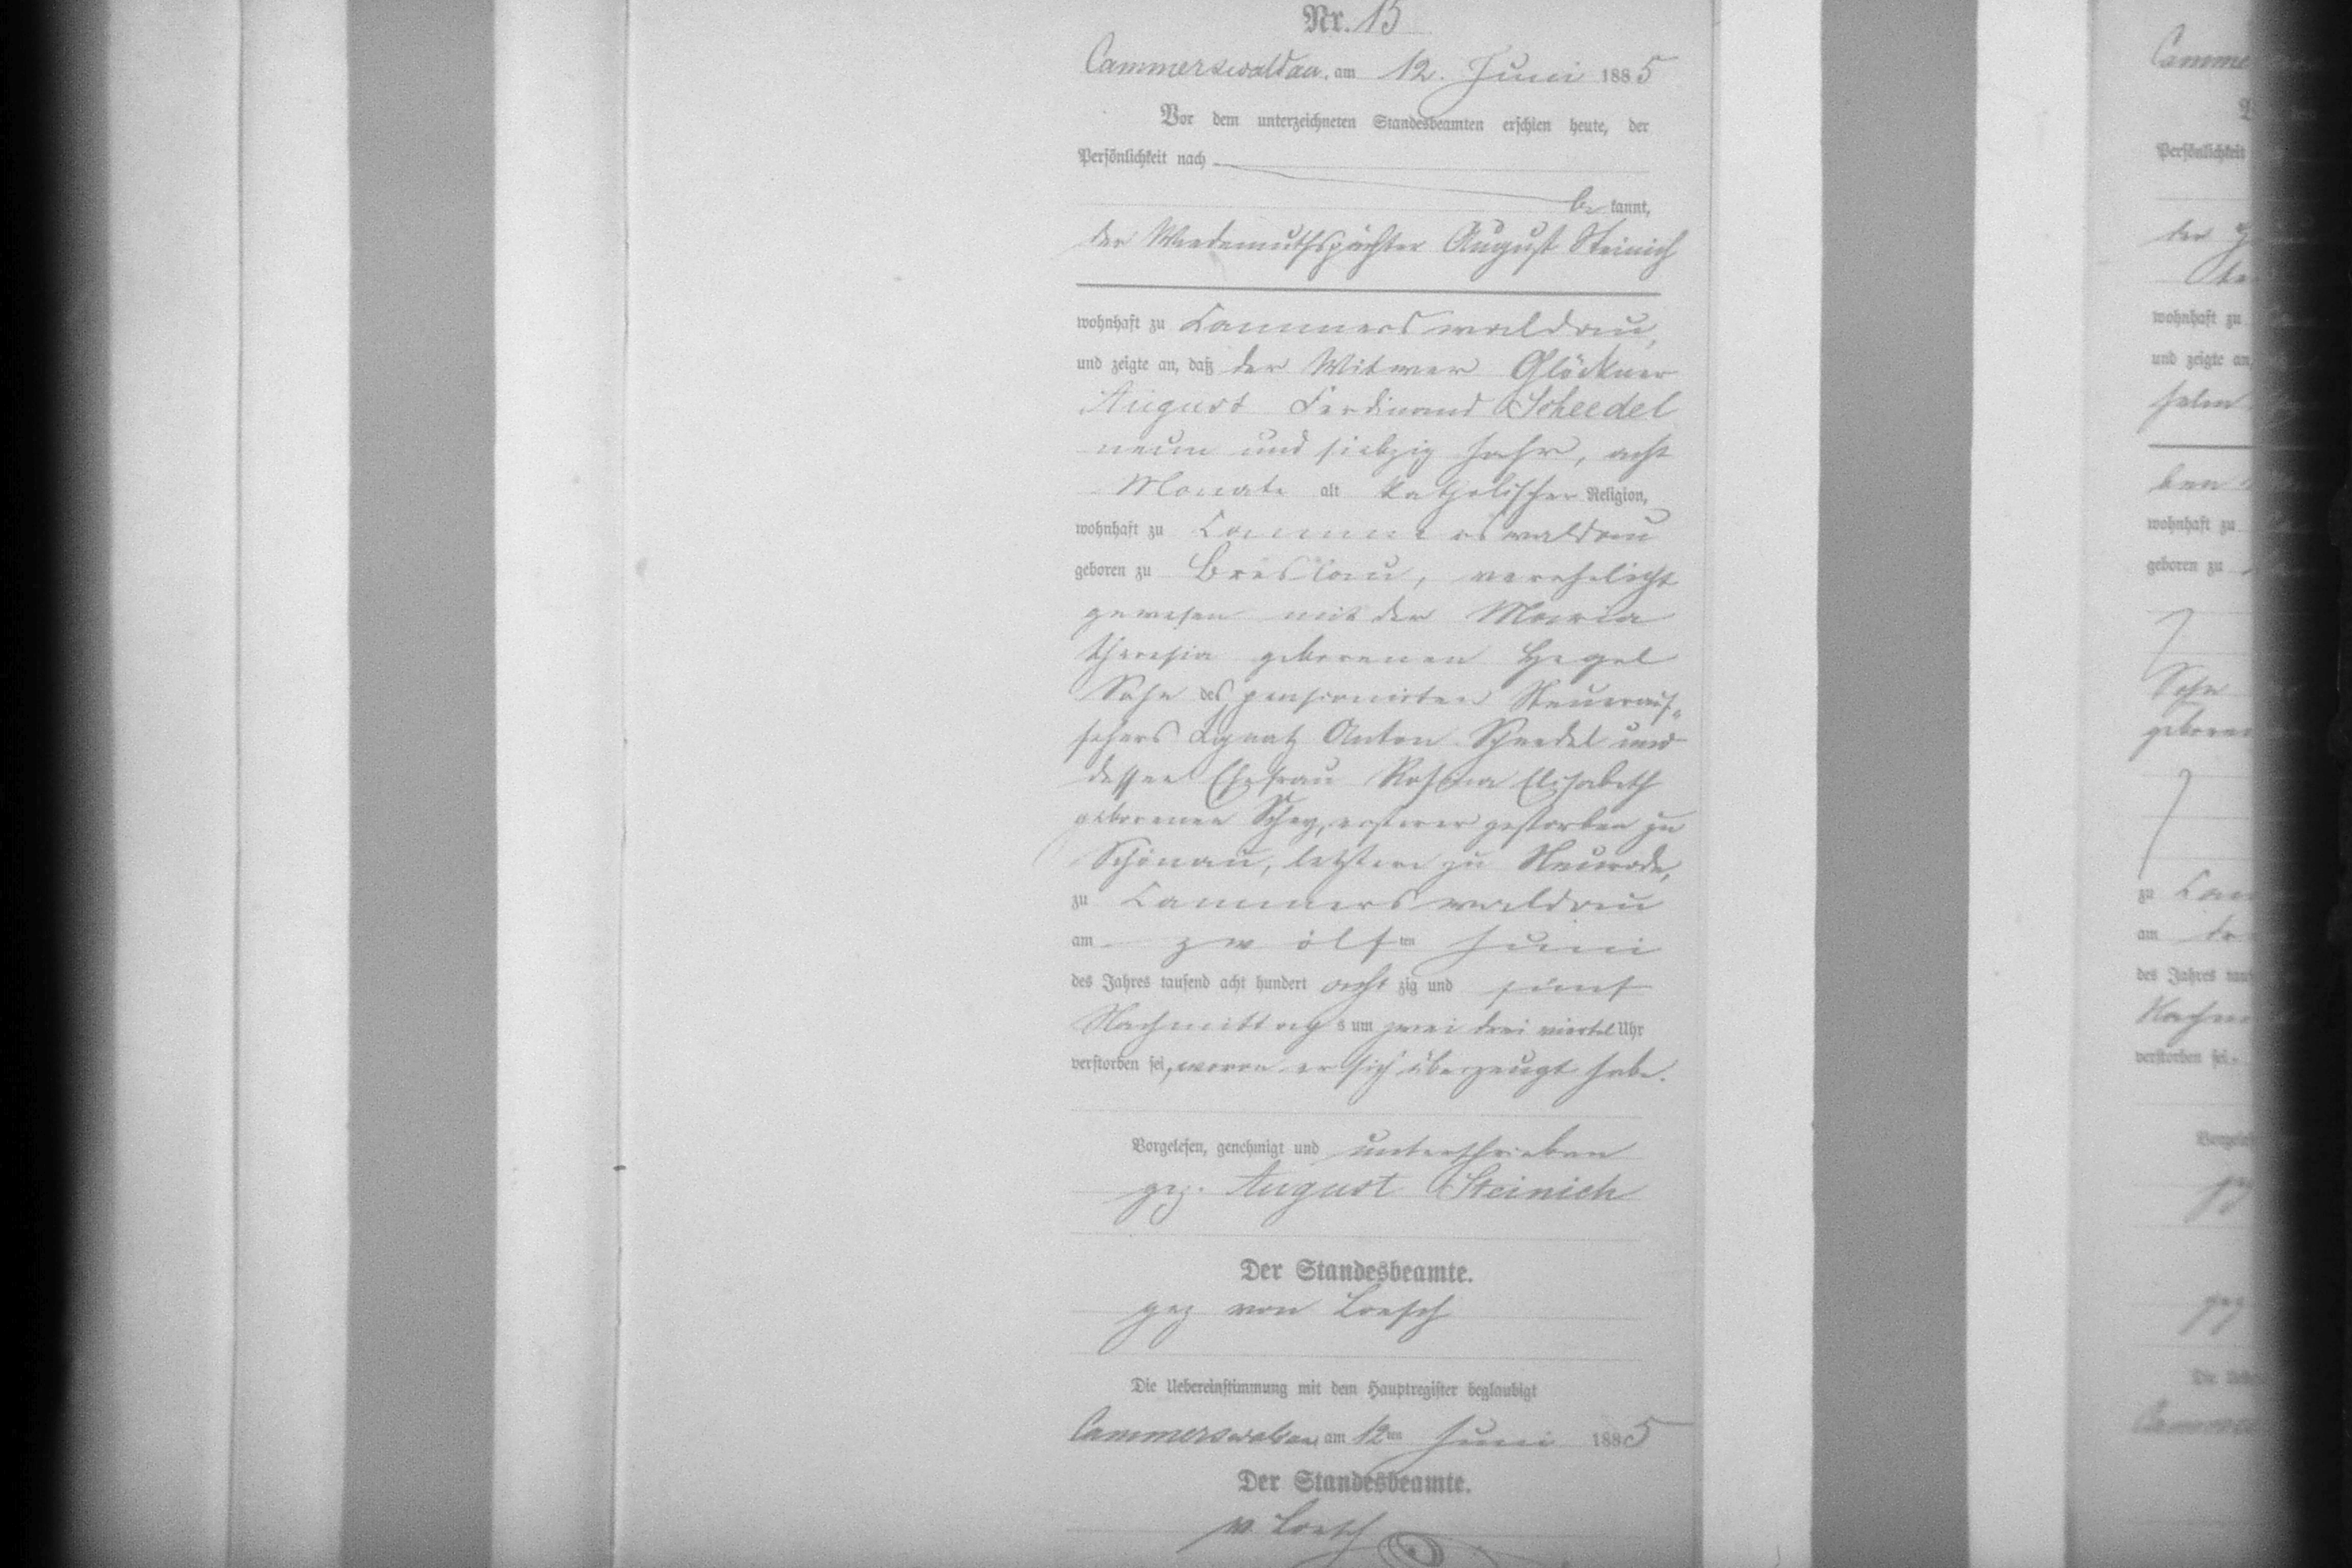 Nr. 15
Cammerswaldau, am 12. Juni 1885
Vor dem unterzeichneten Standesbeamten erschien heute, der
Persönlichkeit nach
be kannt,
der Wiedemuthspächter August Steinich
wohnhaft zu Cammerswaldau,
und zeigte an, daß der Witwer Glöckner
August Ferdinand Scheedel
neun und siebzig Jahr, acht
Monate alt katholischer Religion,
wohnhaft zu Cammerswaldau
geboren zu Breslau, verehelicht
gewesen mit der Maria
Theresia geborenen Hegel
Sohn des pensionirten Steuerauf-
sehers Ignatz Anton Scheedel und
dessen Ehefrau Rosina Elisabeth
geborenen ersterer gestorben zu
Schönau, letztere zu Neurode,
zu Cammerswaldau
am zwölften Juni
des Jahres tausend acht hundert acht zig und fünf
Nachmittags um zwei drei viertel Uhr
verstorben sei, wovon er sich überzeugt habe.
Vorgelesen, genehmigt und unterschrieben
gez. August Steinich
Der Standesbeamte.
gez von Loesch
Die Uebereinstimmung mit dem Hauptregister beglaubigt
Cammerswaldau am 12ten Juni 1885
Der Standesbeamte.
v. Loesch
Persönlichkeit
der
wohnhaft zu
und zeigte an,
wohnhaft zu
geboren zu
Sohn
zu
am
des Jahres
verstorben sei